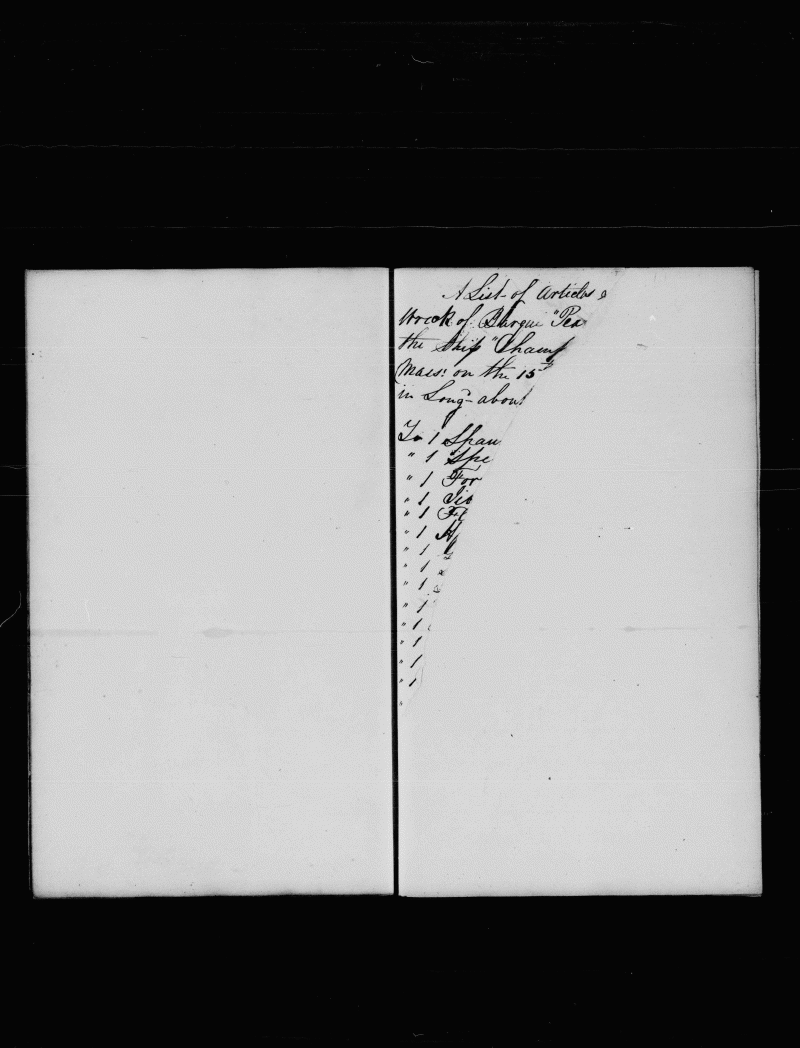 A List of Articles
Wreck of Barque "Pea
the Ship "Champ
Mass: on the 15th
in Long- about
To 1 Span
" 1 Spe
" 1 For
" 1 Jib
" 1 Fl
" 1
" 1
" 1
" 1
" 1
" 1
" 1
" 1
" 1
"